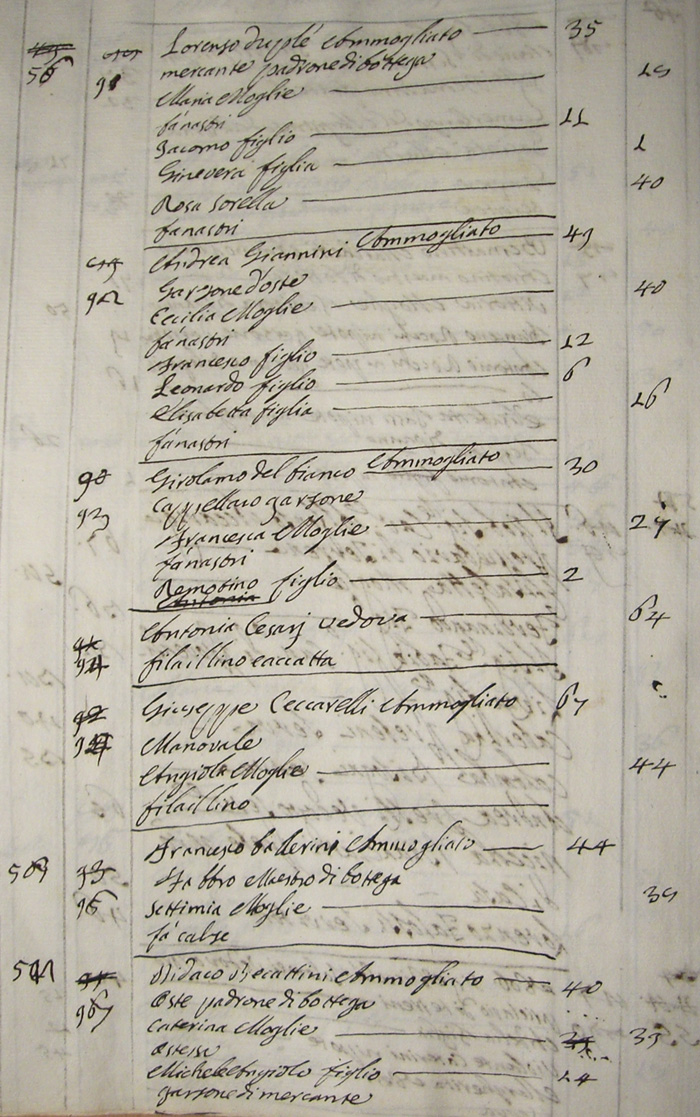 Lorenzo duplé Ammogliato 35
56 91 mercante padrone di bottega
Maria Moglie
fa nastri
Jacomo figlio 11
Ginevera figlia 1
Rosa sorella 40
fa nastri
Andrea Giannini Ammogliato 43
Garzone d'oste
92 Cecilia Moglie 40
fa nastri
Francesco figlio 12
Leonardo figlio 6
Elisabetta figlia 16
fa nastri
Girolamo del bianco Ammogliato 30
Cappellaio garzone
93 Francesca Moglie 27
fa nastri
figlio 2
Antonia
Antonia Cesarj vedova 64
94 fila il lino e accatta
Giuseppe Ceccarelli Ammogliato 67
Manovale
Angiola Moglie 44
fila il lino
Francesco ballerini Ammogliato 44
Fabbro Maestro di bottega
96 Settimia Moglie
fa calze
Becattini Ammogliato 40
Oste padrone di bottega
Caterina Moglie 33
Ostessa
Michele Angiolo figlio 14
garzone di mercante